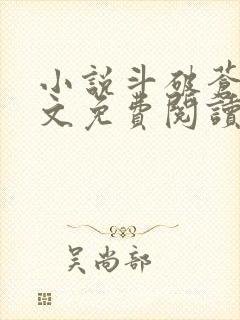 小說斗破蒼
文免費閱讀
吴尚部